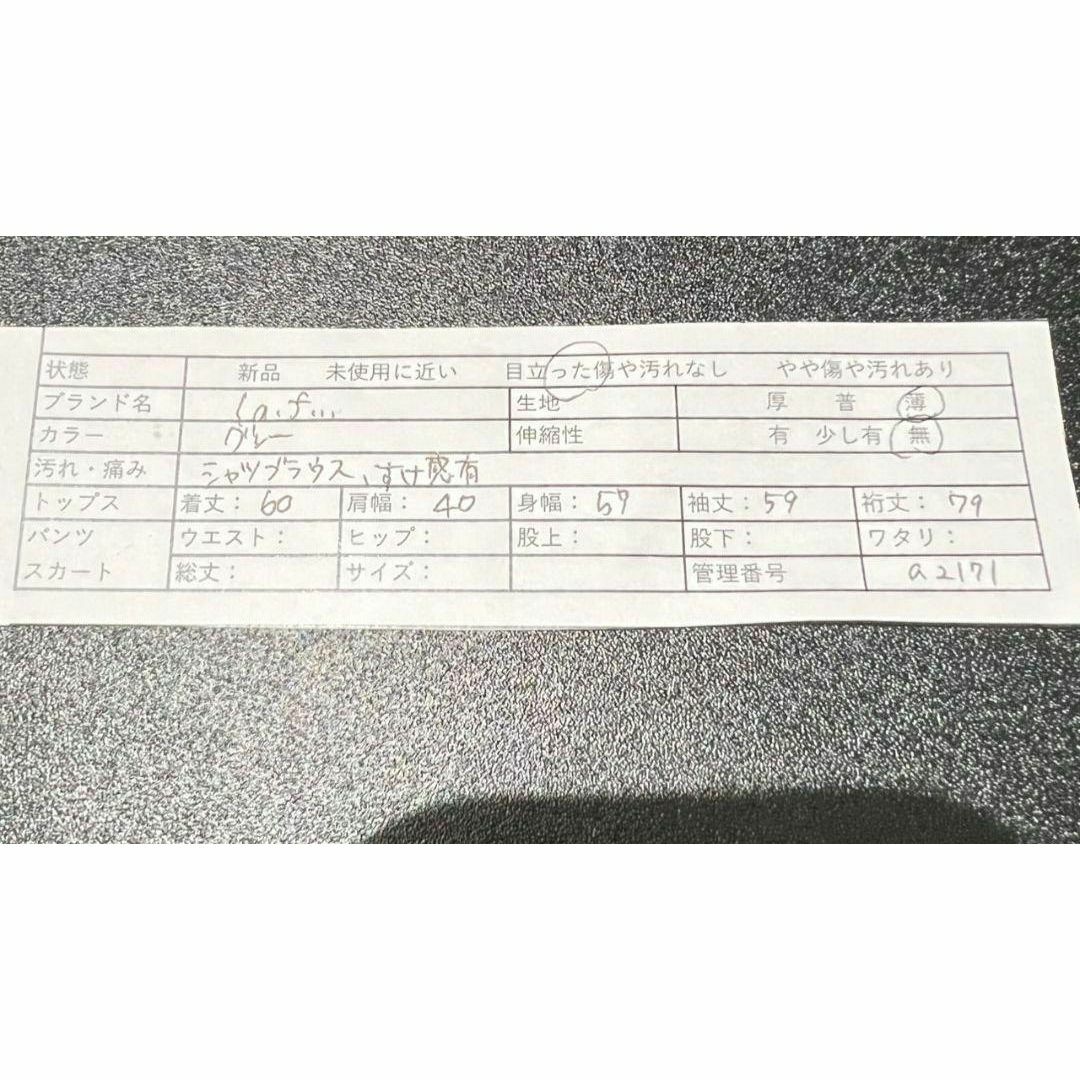 状態 新品 未使用に近い 目立った傷や汚れなし やや傷や汚れあり
ブランド名 La.f... 生地 厚 普 薄
カラー グレー 伸縮性 有 少し有 無
汚れ・痛み シャツブラウス、すけ感有
トップス 着丈: 60 肩幅: 40 身幅: 57 袖丈: 59 裄丈: 79
パンツ ウエスト: ヒップ: 股上: 股下: ワタリ:
スカート 総丈: サイズ: 管理番号 a2171